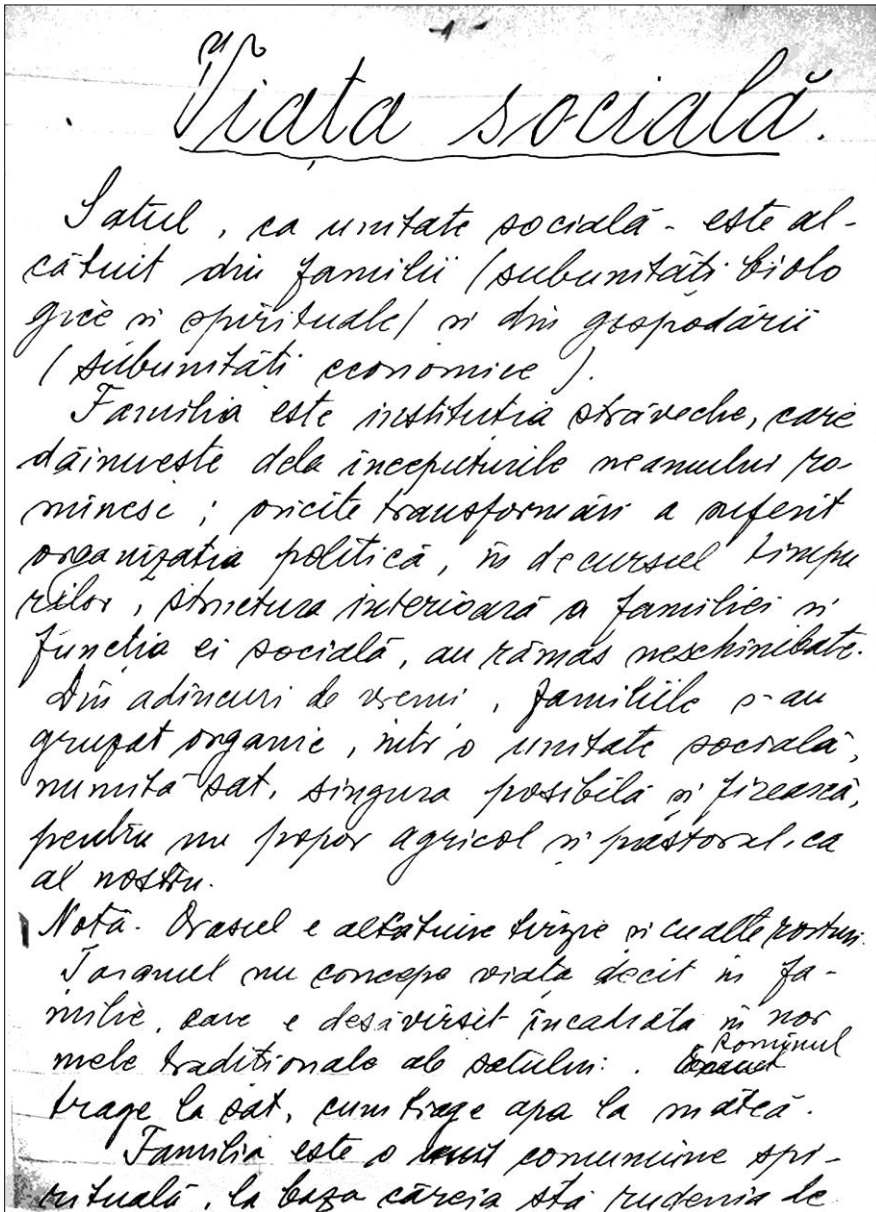 -1-
Viața socială.
Satul, ca unitate socială - este al-
cătuit din familii (subunități biolo
gice și spirituale) și din gospodării
(subunități economice).
Familia este instituția străveche, care
dăinuește dela începuturile neamului ro-
mînesc; oricîte transformări a suferit
organizația politică, în decursul timpu
rilor, structura interioară a familiei și
funcția ei socială, au rămas neschimbate.
Din adîncuri de vremi, familiile s-au
grupat organic, într'o unitate socială,
numită sat, singura posibilă și firească,
pentru un popor agricol și păstoral, ca
al nostru.
Notă. Orașul e alcătuire tîrzie și cu alte rosturi.
Țăranul nu concepe viața decît în fa-
milie, care e desăvîrșit încadrată în nor
mele tradiționale ale satului. Romînul
trage la sat, cum trage apa la matcă.
Familia este o comuniune spi-
rituală, la baza căreia stă rudenia de